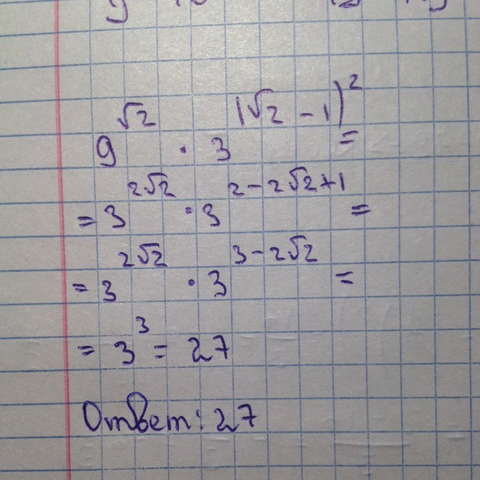 9^√2 · 3^(√2 - 1)^2 =
= 3^2√2 · 3^2-2√2+1 =
= 3^2√2 · 3^3-2√2 =
= 3^3 = 27
Ответ: 27